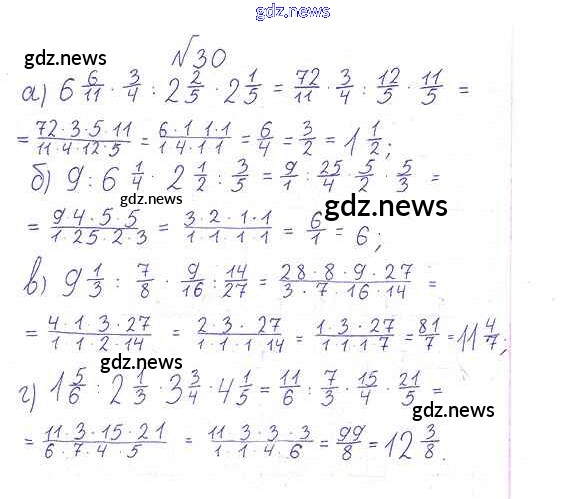 gdz.news
№30
gdz.news
а) 6 6/11 · 3/4 : 2 2/5 · 2 1/5 = 72/11 · 3/4 : 12/5 · 11/5 =
= 72·3·5·11/11·4·12·5 = 6·1 1·1/1 4·1 1 = 6/4 = 3/2 = 1 1/2;
б) 9 : 6 1/4 · 2 1/2 : 3/5 = 9/1 : 25/4 · 5/2 · 5/3 =
gdz.news
= 9 4·5·5/1·25·2·3 = 3·2·1·1/1·1·1·1 = 6/1 = 6;
в) 9 1/3 : 7/8 · 9/16 : 14/27 = 28·8·9·27/3·7·16·14 =
gdz.news
= 4·1 3·27/1 1·2·14 = 2·3·27/1·1·1·14 = 1·3·27/1·1·1 7 = 81/7 = 11 4/7;
gdz.news
г) 1 5/6 : 2 1/3 · 3 3/4 · 4 1/5 = 11/6 : 7/3 · 15/4 · 21/5 =
gdz.news
= 11·3·15·21/6·7·4·5 = 11 3·3·3/1·1·4·6 = 99/8 = 12 3/8.
gdz.news